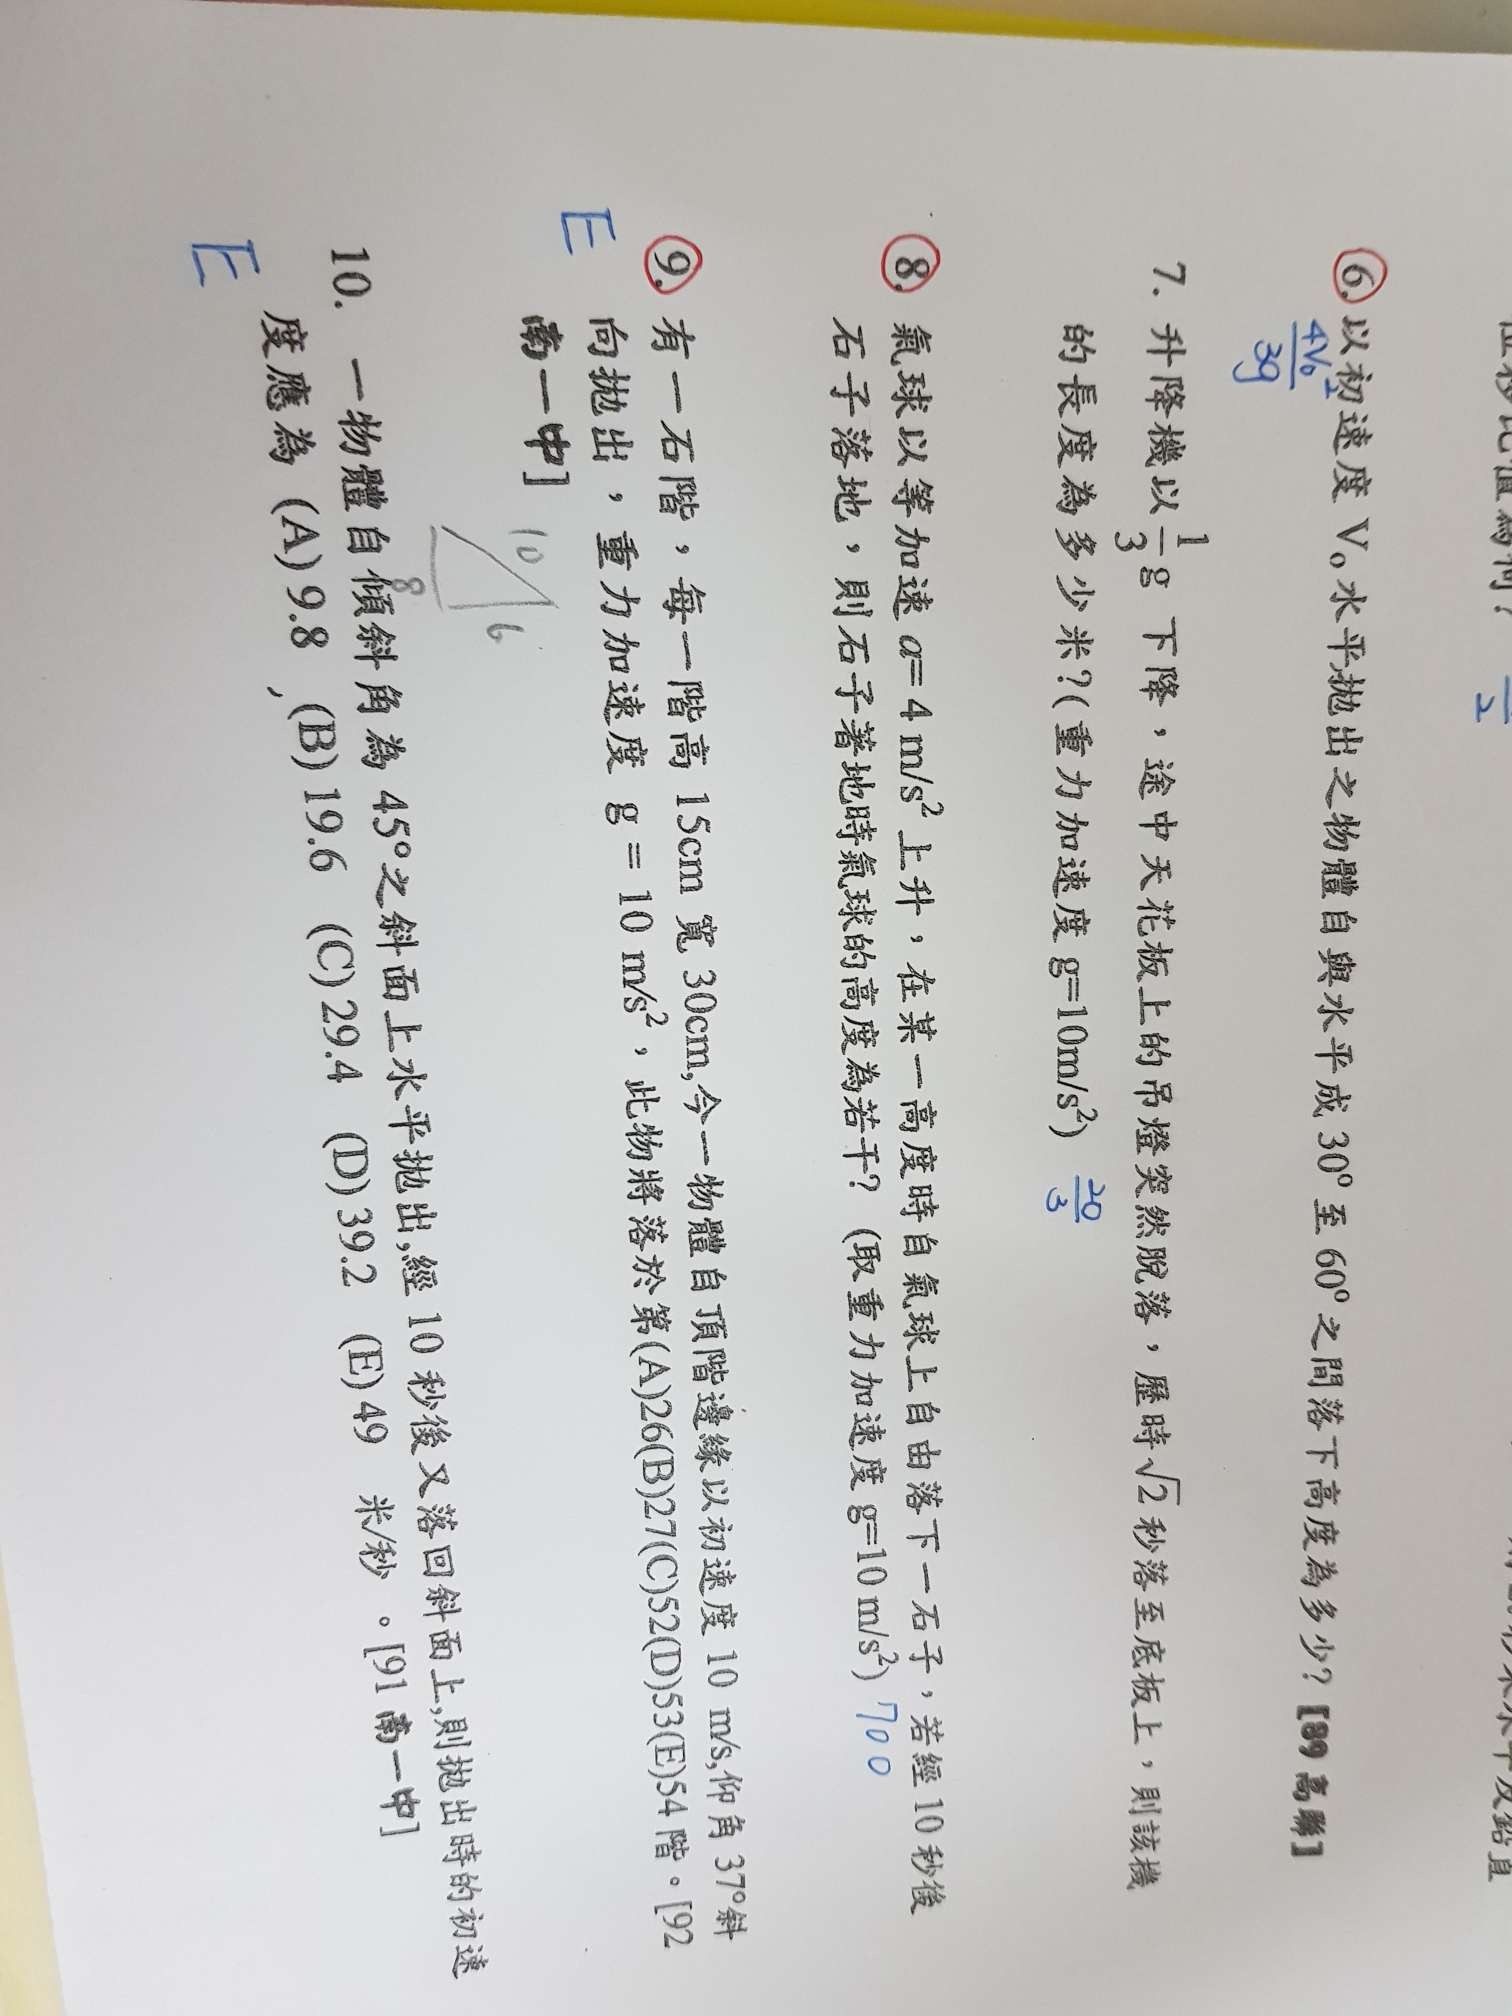 6. 以初速度 V₀水平拋出之物體自與水平成 30⁰至 60⁰之間落下高度為多少?【89 高聯】
4V₀²
3g
7. 升降機以 1/3 g 下降，途中天花板上的吊燈突然脫落，歷時√2 秒落至底板上，則該機
的長度為多少米?(重力加速度 g=10m/s²) 20/3
8. 氣球以等加速 a= 4 m/s² 上升，在某一高度時自氣球上自由落下一石子，若經 10 秒後
石子落地，則石子著地時氣球的高度為若干? (取重力加速度 g=10 m/s²) 700
9. 有一石階，每一階高 15cm 寬 30cm,今一物體自頂階邊緣以初速度 10 m/s,仰角 37⁰斜
E 向拋出，重力加速度 g = 10 m/s²，此物將落於第(A)26(B)27(C)52(D)53(E)54 階。[92
南一中]
10 6
8
10. 一物體自傾斜角為 45⁰之斜面上水平拋出,經 10 秒後又落回斜面上,則拋出時的初速
E 度應為 (A) 9.8 (B) 19.6 (C) 29.4 (D) 39.2 (E) 49 米/秒 。[91 南一中]